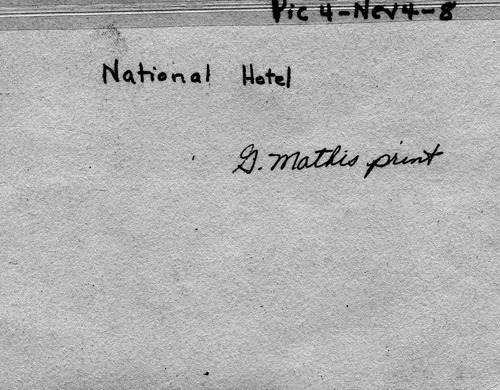 Pic 4-Nev4-8
National Hotel
G. Mathis print